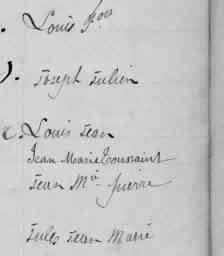 Louis Fçois
Joseph Julien
Louis Jean
Jean Marie Toussaint
Jean Mie Pierre
Jules Jean Marie